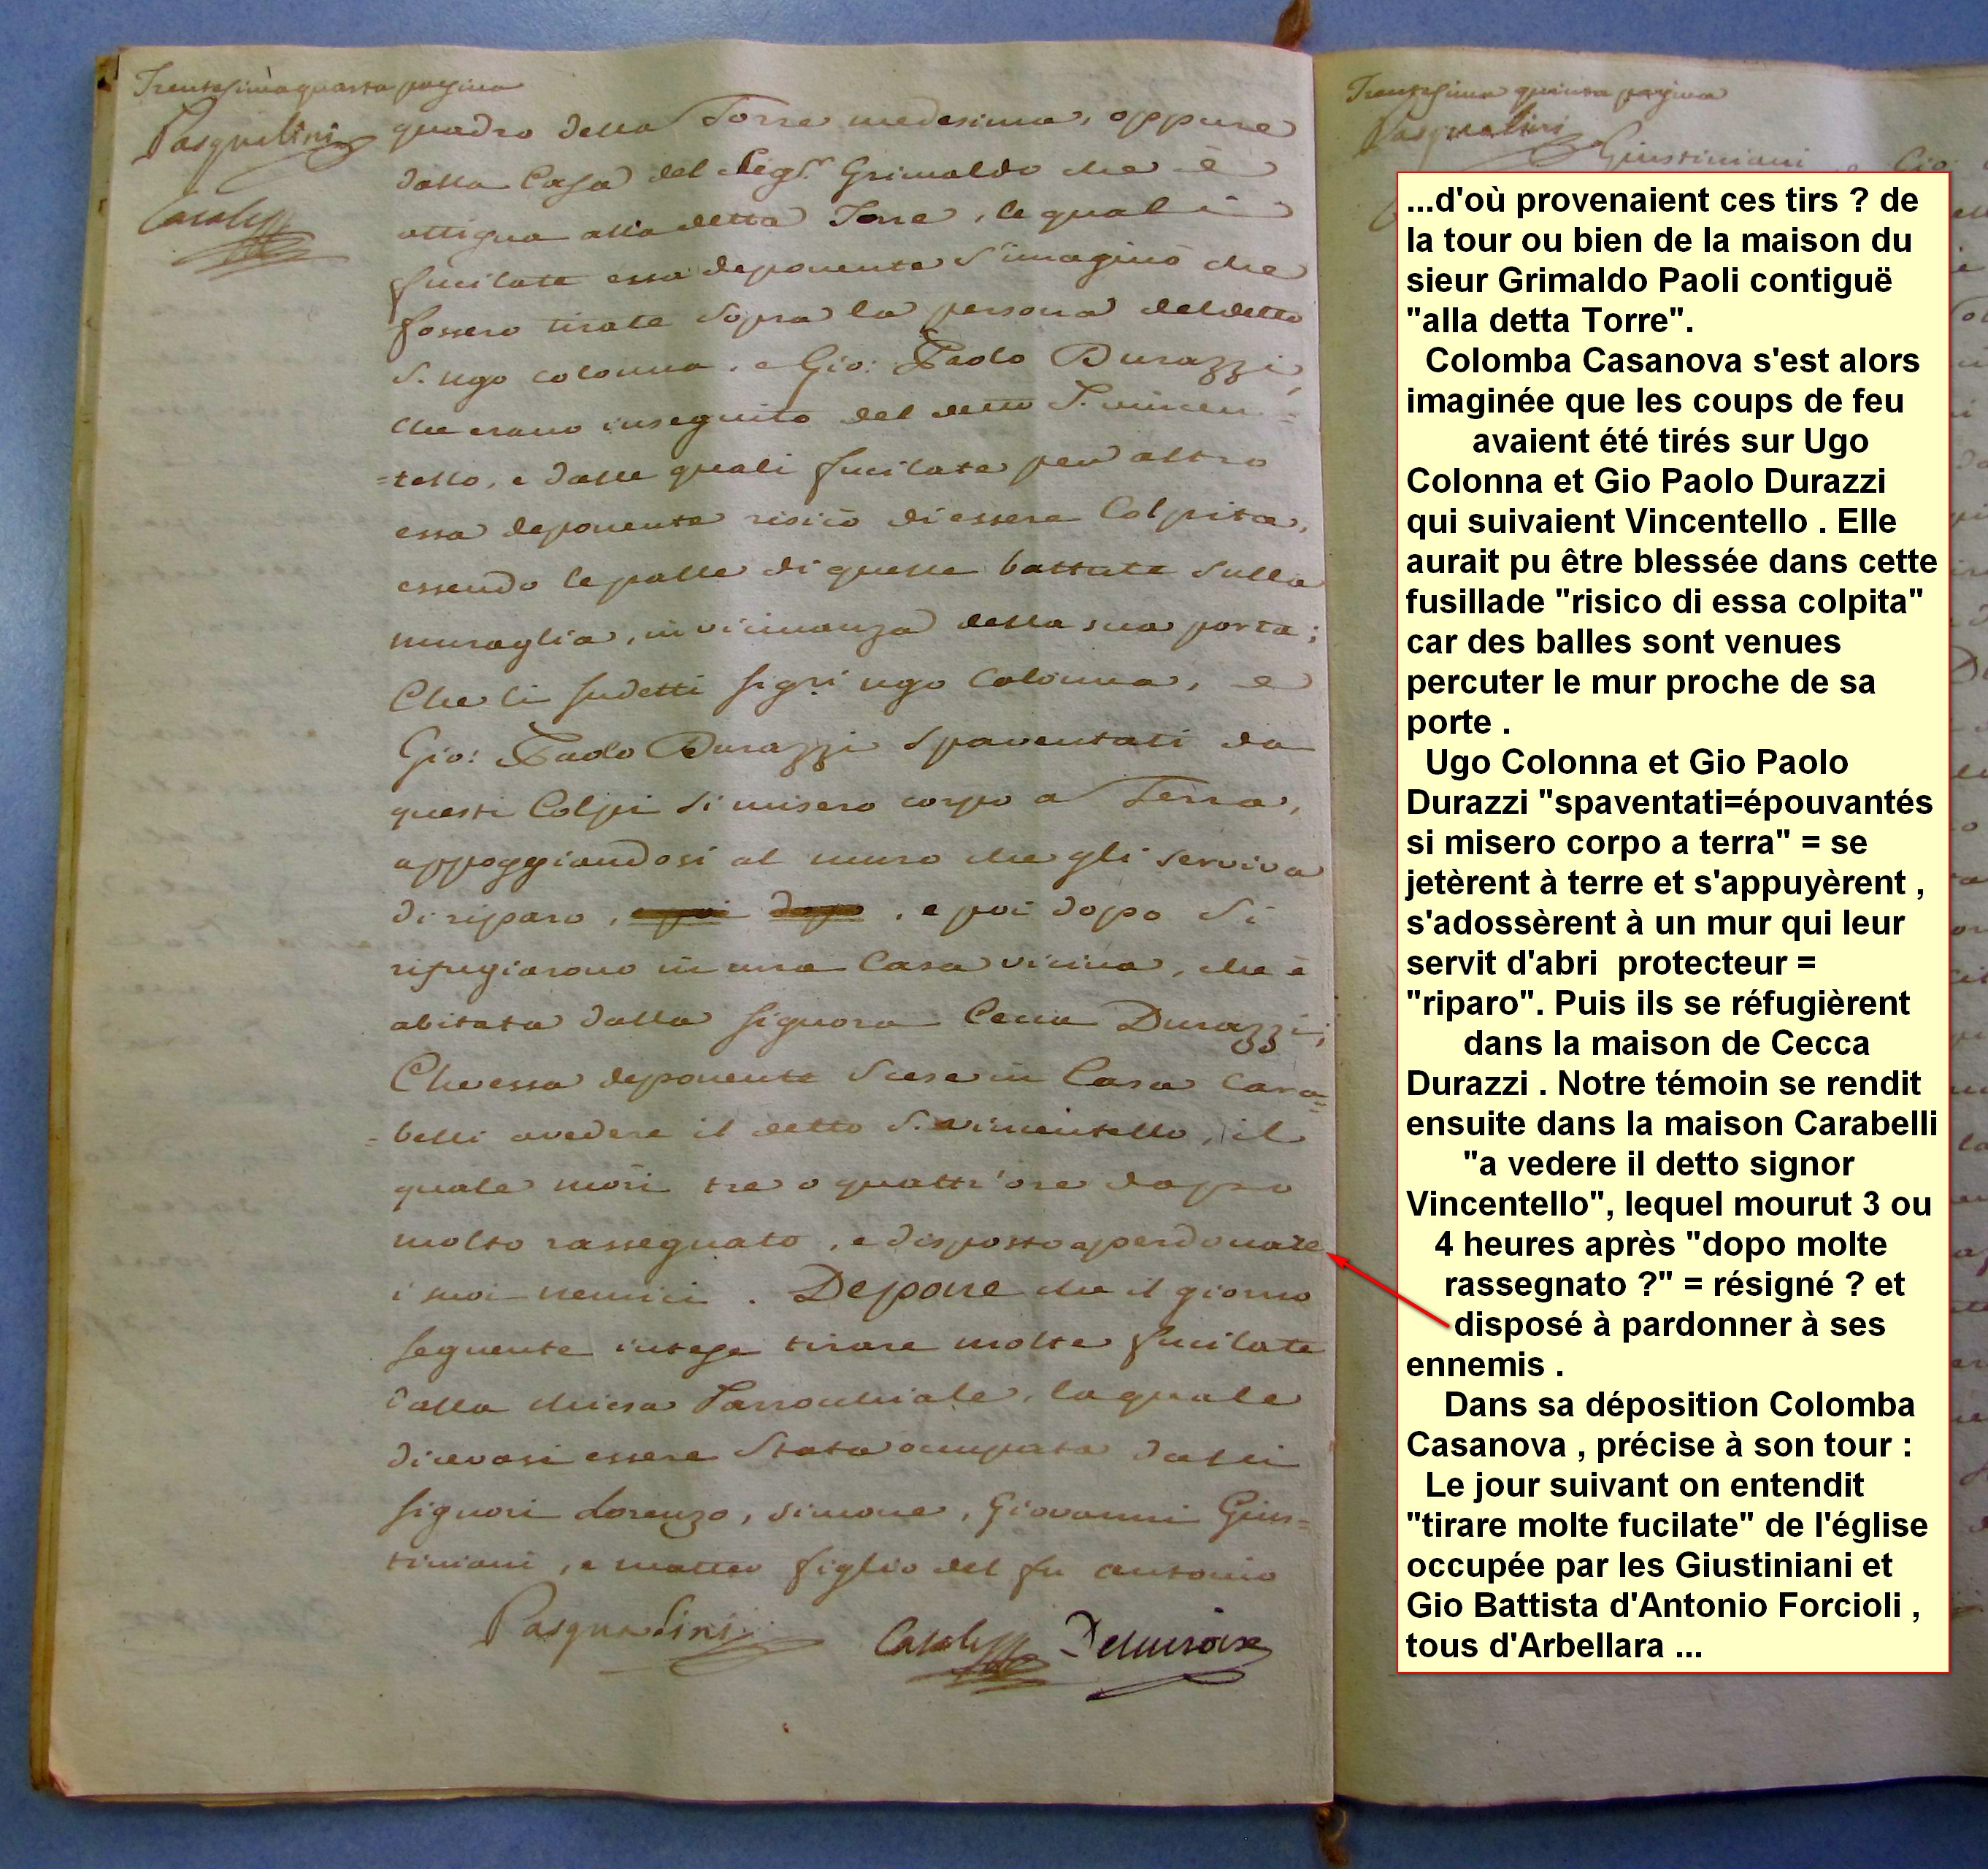 Trentesima quarta pagina
Pasqualini
quadro della Torre medesima, oppure
dalla Casa del Sigr. Grimaldo che è
attigua alla detta Torre, le quali
fucilate essa deponente s'imaginò che
fossero tirate sopra la persona del detto
S. Ugo Colonna, e Gio: Paolo Durazzi,
che erano inseguito del detto S. Vincen=
=tello, e dalle quali fucilate per altro
essa deponente risicò di essere Colpita,
essendo le palle di quelle battute sulla
muraglia, in vicinanza della sua porta;
Che li sudetti sigri Ugo Colonna, e
Gio: Paolo Durazzi spaventati da
questi Colpi si misero corpo a Terra,
appoggiandosi al muro che gli serviva
di riparo, e poi dopo, e poi dopo si
rifugiarono in una Casa vicina, che è
abitata dalla Signora Cecca Durazzi;
Che essa deponente scese in Casa Cara=
=belli a vedere il detto S. Vincentello, il
quale morì tre o quattr'ore dopo
molto rassegnato, e disposto a perdonare
i suoi nemici. Depone che il giorno
seguente intese tirare molte fucilate
dalla chiesa Parrochiale, la quale
dicevasi essere stata occupata dalli
Signori Lorenzo, Simone, Giovanni Gius=
tiniani, e Matteo figlio del fu Antonio
Pasqualini
Trentesima quinta pagina
Pasqualini
Giustiniani
...d'où provenaient ces tirs ? de
la tour ou bien de la maison du
sieur Grimaldo Paoli contiguë
"alla detta Torre".
Colomba Casanova s'est alors
imaginée que les coups de feu
avaient été tirés sur Ugo
Colonna et Gio Paolo Durazzi
qui suivaient Vincentello . Elle
aurait pu être blessée dans cette
fusillade "risico di essa colpita"
car des balles sont venues
percuter le mur proche de sa
porte .
Ugo Colonna et Gio Paolo
Durazzi "spaventati=épouvantés
si misero corpo a terra" = se
jetèrent à terre et s'appuyèrent ,
s'adossèrent à un mur qui leur
servit d'abri protecteur =
"riparo". Puis ils se réfugièrent
dans la maison de Cecca
Durazzi . Notre témoin se rendit
ensuite dans la maison Carabelli
"a vedere il detto signor
Vincentello", lequel mourut 3 ou
4 heures après "dopo molte
rassegnato ?" = résigné ? et
disposé à pardonner à ses
ennemis .
Dans sa déposition Colomba
Casanova , précise à son tour :
Le jour suivant on entendit
"tirare molte fucilate" de l'église
occupée par les Giustiniani et
Gio Battista d'Antonio Forcioli ,
tous d'Arbellara ...